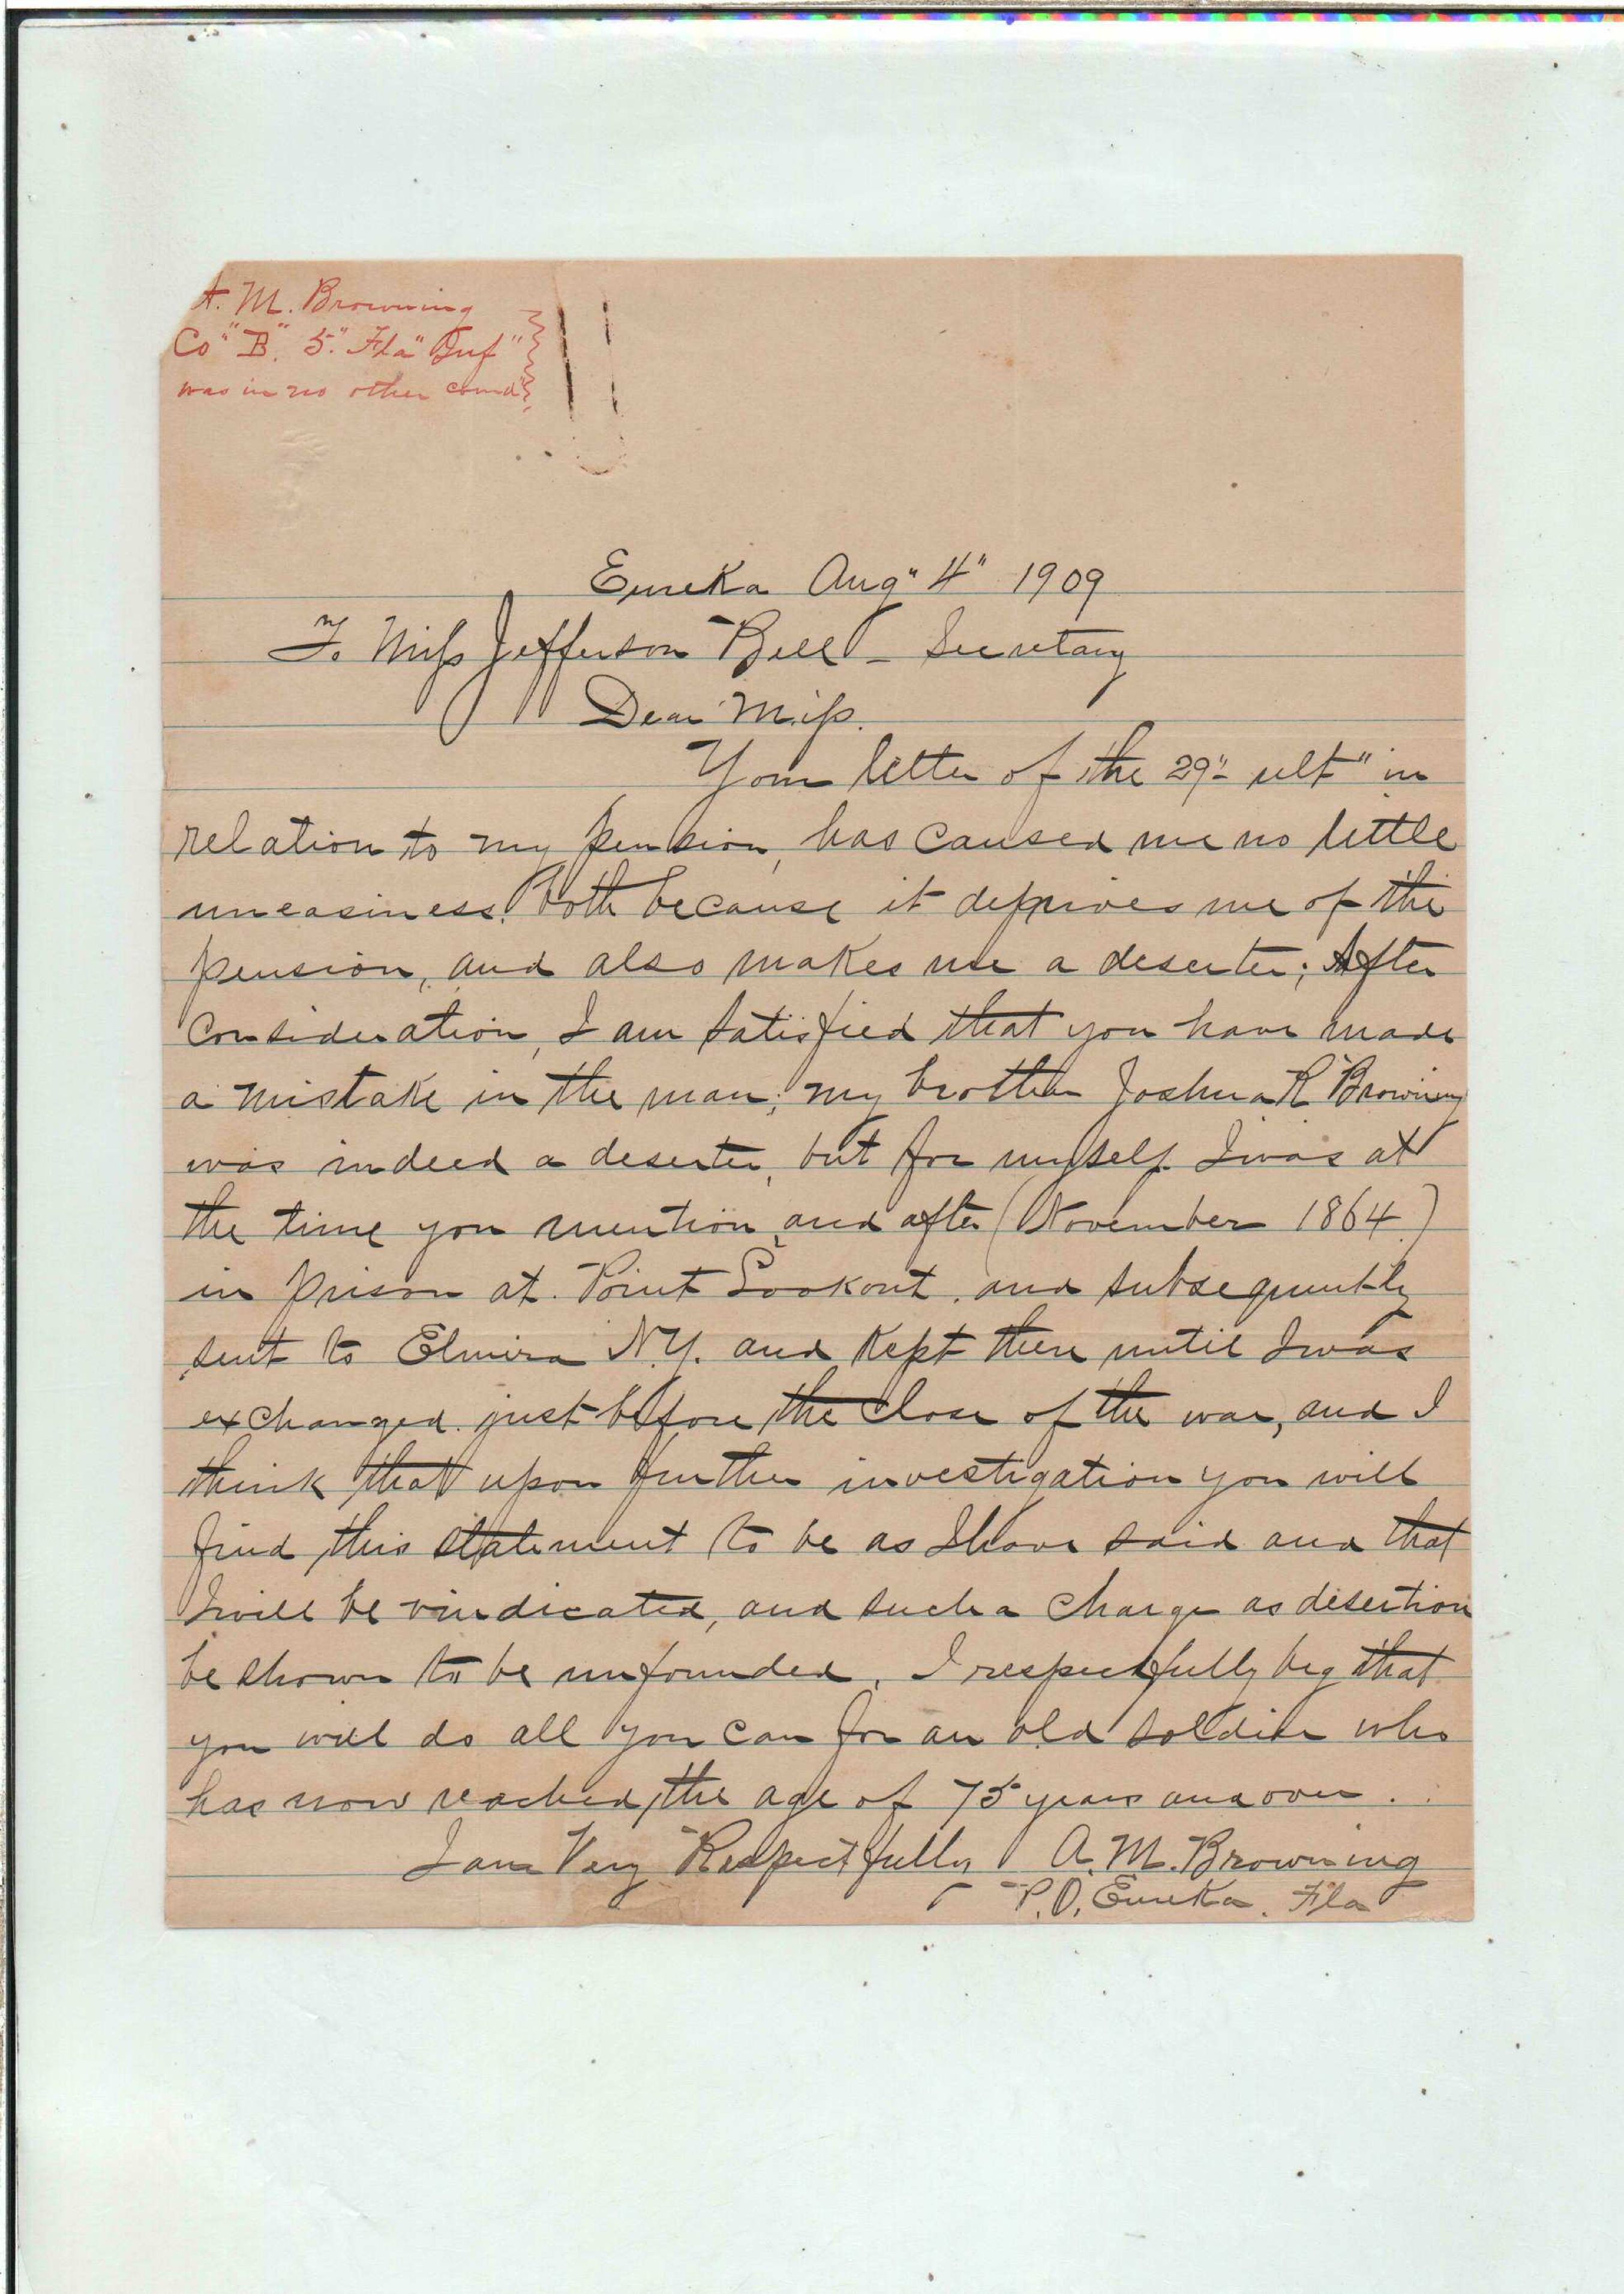 A. M. Browning
Co "B". 5" Fla" Inf"
was in no other comd"
Eureka Aug" 4" 1909
To Miss Jefferson Bell - Secretary
Dear Miss.
Your letter of the 29"- ult" in
relation to my pension, has caused me no little
uneasiness. both because it deprives me of the
pension, and also makes me a deserter; After
consideration, I am satisfied that you have made
a mistake in the man; my brother Joshua R Browning
was indeed a deserter, but for myself I was at
the time you mention and after (November 1864)
in prison at Point Lookout, and subsequently
sent to Elmira N.Y. and kept there until I was
exchanged just before the close of the war, and I
think that upon further investigation you will
find this statement to be as I have said and that
I will be vindicated, and such a charge as desertion
be shown to be unfounded, I respectfully beg that
you will do all you can for an old soldier who
has now reached the age of 75 years and over.
I am Very Respectfully A. M. Browning
P.O. Eureka. Fla